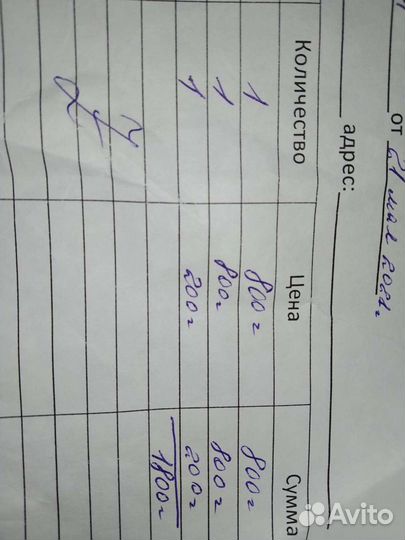 от 21 мая 2021г
адрес:
Количество Цена Сумма
1 800 г 800 г
1 800г 800 г
1 200 г 200 г
1800 г
Avito